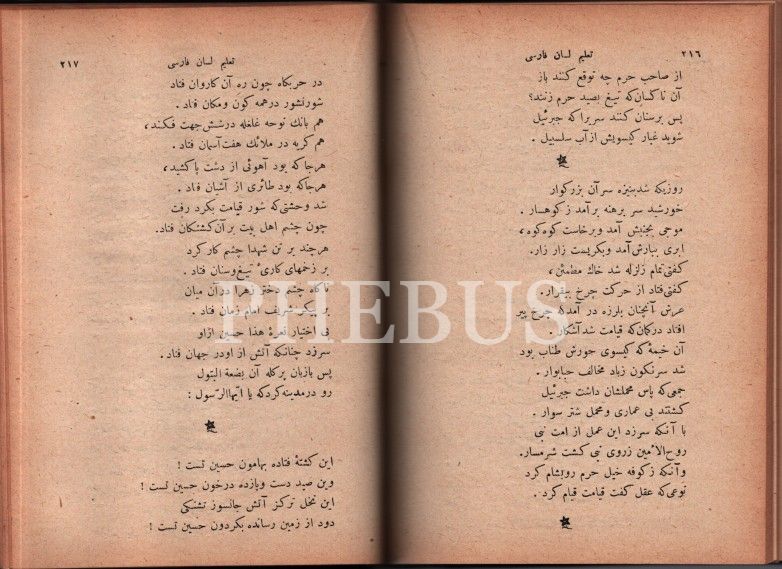 ٢١٦
تعليم لسان فارسى
از صاحب حرم چه توقع كنند باز
آن ناكسان كه تيغ بصيد حرم زنند؟
پس برسنان كنند سريرا كه جبرئيل
شويد غبار كيسويش از آب سلسبيل .
روزيكه شد بنيزه سر آن بزركوار
خورشيد سر برهنه برآمد ز كوهسار .
موجى بجنبش آمد وبرخاست كوه كوه ،
ابرى ببارش آمد وبكريست زار زار .
كفتى تمام زلزله شد خاك مطمئن ،
كفتى فتاد از حركت چرخ بيقرار .
عرش آنچنان بلرزه در آمدكه چرخ پير
افتاد دركمان كه قيامت شد آشكار .
آن خيمهٔ كه كيسوى حورش طناب بود
شد سرنكون زباد مخالف حبابوار .
جمعى كه پاس محملشان داشت جبرئيل
كشتند بى عمارى ومحمل شتر سوار .
با آنكه سرزد اين عمل از امت نبى
روح الأمين زروى نبى كشت شرمسار.
وآنكه زكوفه خيل حرم روبشام كرد
نوعى كه عقل كفت قيامت قيام كرد .
تعليم لسان فارسى
٢١٧
در حربكاه چون ره آن كاروان فتاد
شورنشور درهمه كون ومكان فتاد .
هم بانك نوحه غلغله درشش جهت فكند ،
هم كريه در ملائك هفت آسمان فتاد .
هرجا كه بود آهوئى از دشت پا كشيد ،
هرجا كه بود طائرى از آشيان فتاد .
شد وحشتى كه شور قيامت بكرد رفت
چون چشم اهل بيت بر آن كشتكان فتاد.
هرچند بر تن شهدا چشم كار كرد
بر زخمهاى كارئ تيغ وسنان فتاد .
ناكاه چشم دختر زهرا در آن ميان
بر پيكر شريف امام زمان فتاد .
بى اختيار نعرهٔ هذا حسين ازاو
سرزد چنانكه آتش از اودر جهان فتاد .
پس بازبان پركله آن بضعة البتول
رو درمدينه كردكه يا ايّها الرّسول :
اين كشتهٔ فتاده بهامون حسين تست !
وين صيد دست وپازده درخون حسين تست !
اين نخل تركز آتش جانسوز تشنكى
دود از زمين رسانده بكردون حسين تست !
PHEBUS